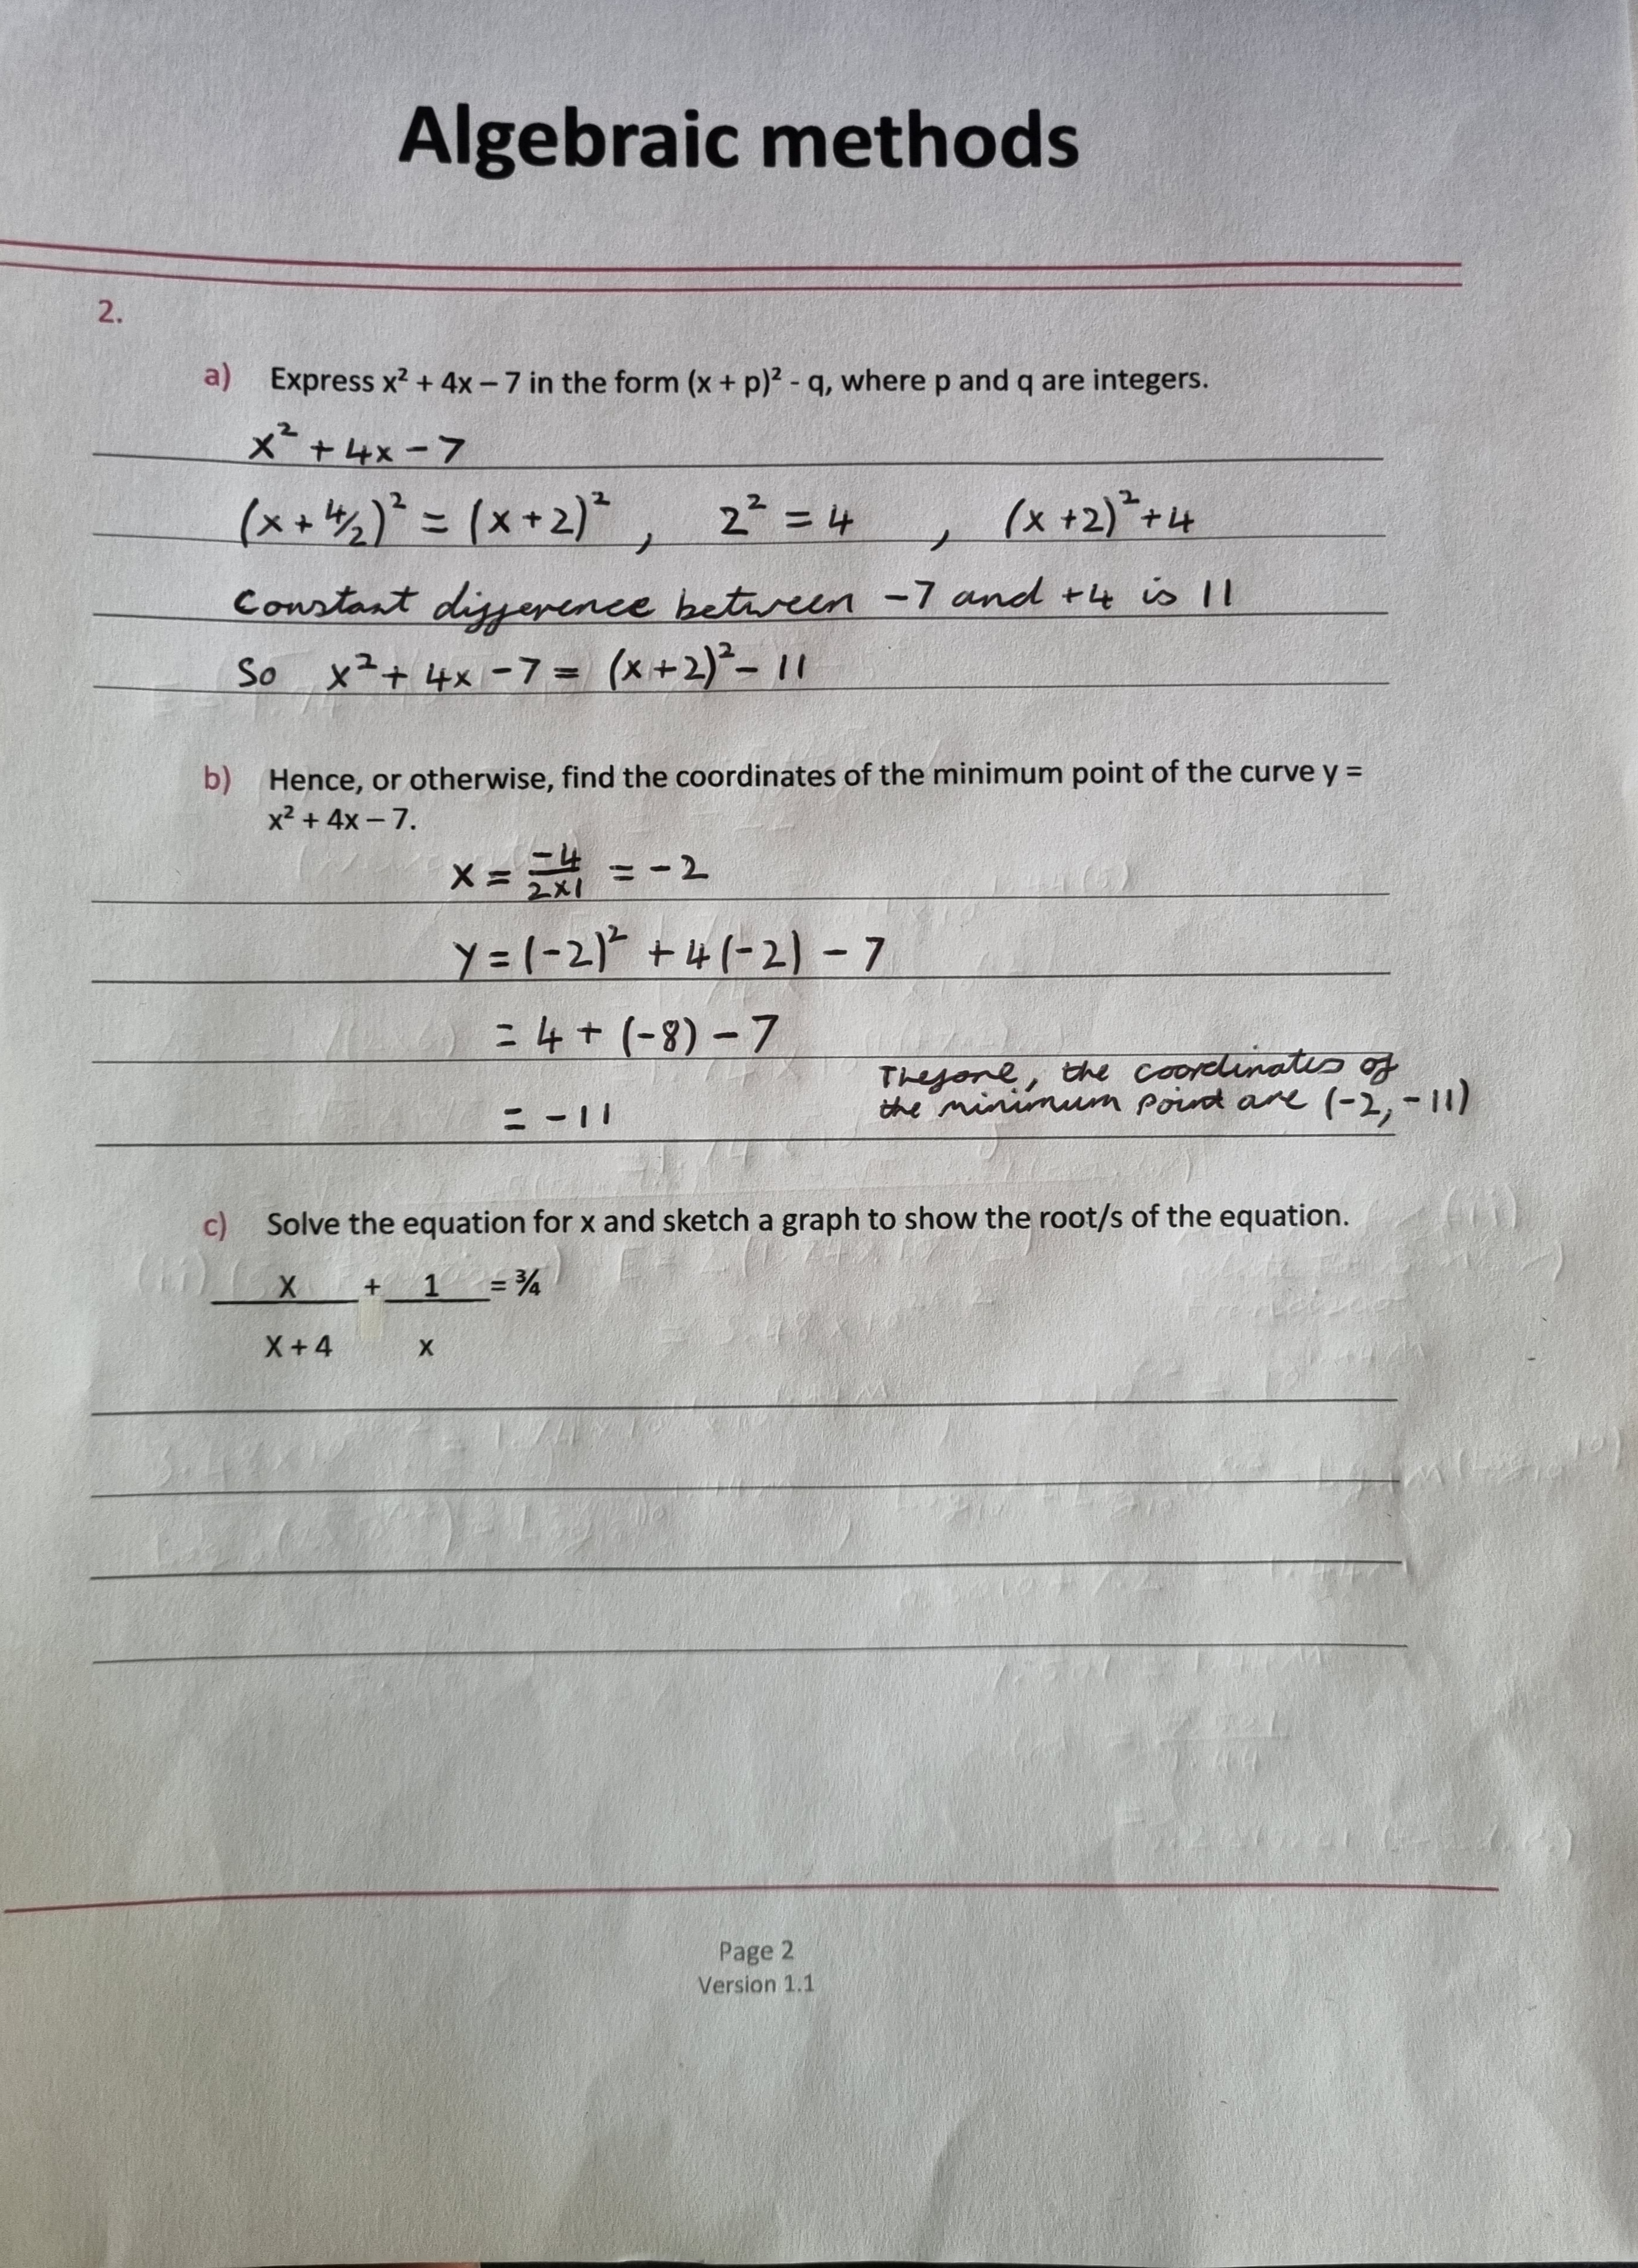 Algebraic methods
2.
a) Express x² + 4x – 7 in the form (x + p)² - q, where p and q are integers.
x² + 4x - 7
(x + 4/2)² = (x + 2)² , 2² = 4 , (x + 2)² + 4
Constant difference between -7 and +4 is 11
So x² + 4x - 7 = (x + 2)² - 11
b) Hence, or otherwise, find the coordinates of the minimum point of the curve y =
x² + 4x – 7.
x = -4/2×1 = -2
y = (-2)² + 4(-2) - 7
= 4 + (-8) - 7
= -11
the coordinates of
the minimum point are (-2, -11)
c) Solve the equation for x and sketch a graph to show the root/s of the equation.
X + 1 = ¾
X + 4 x
Page 2
Version 1.1